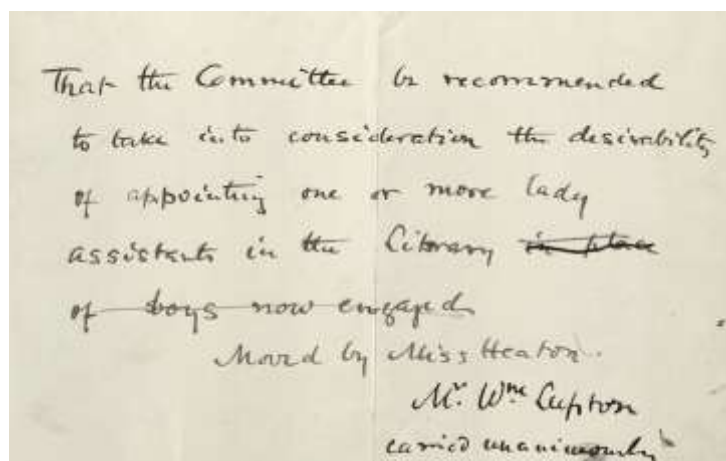 That the Committee be recommended
to take into consideration the desirability
of appointing one or more lady
assistants in the Library in place
of boys now engaged
Moved by Miss Heaton.
Mr. Wm Lupton
carried unanimously